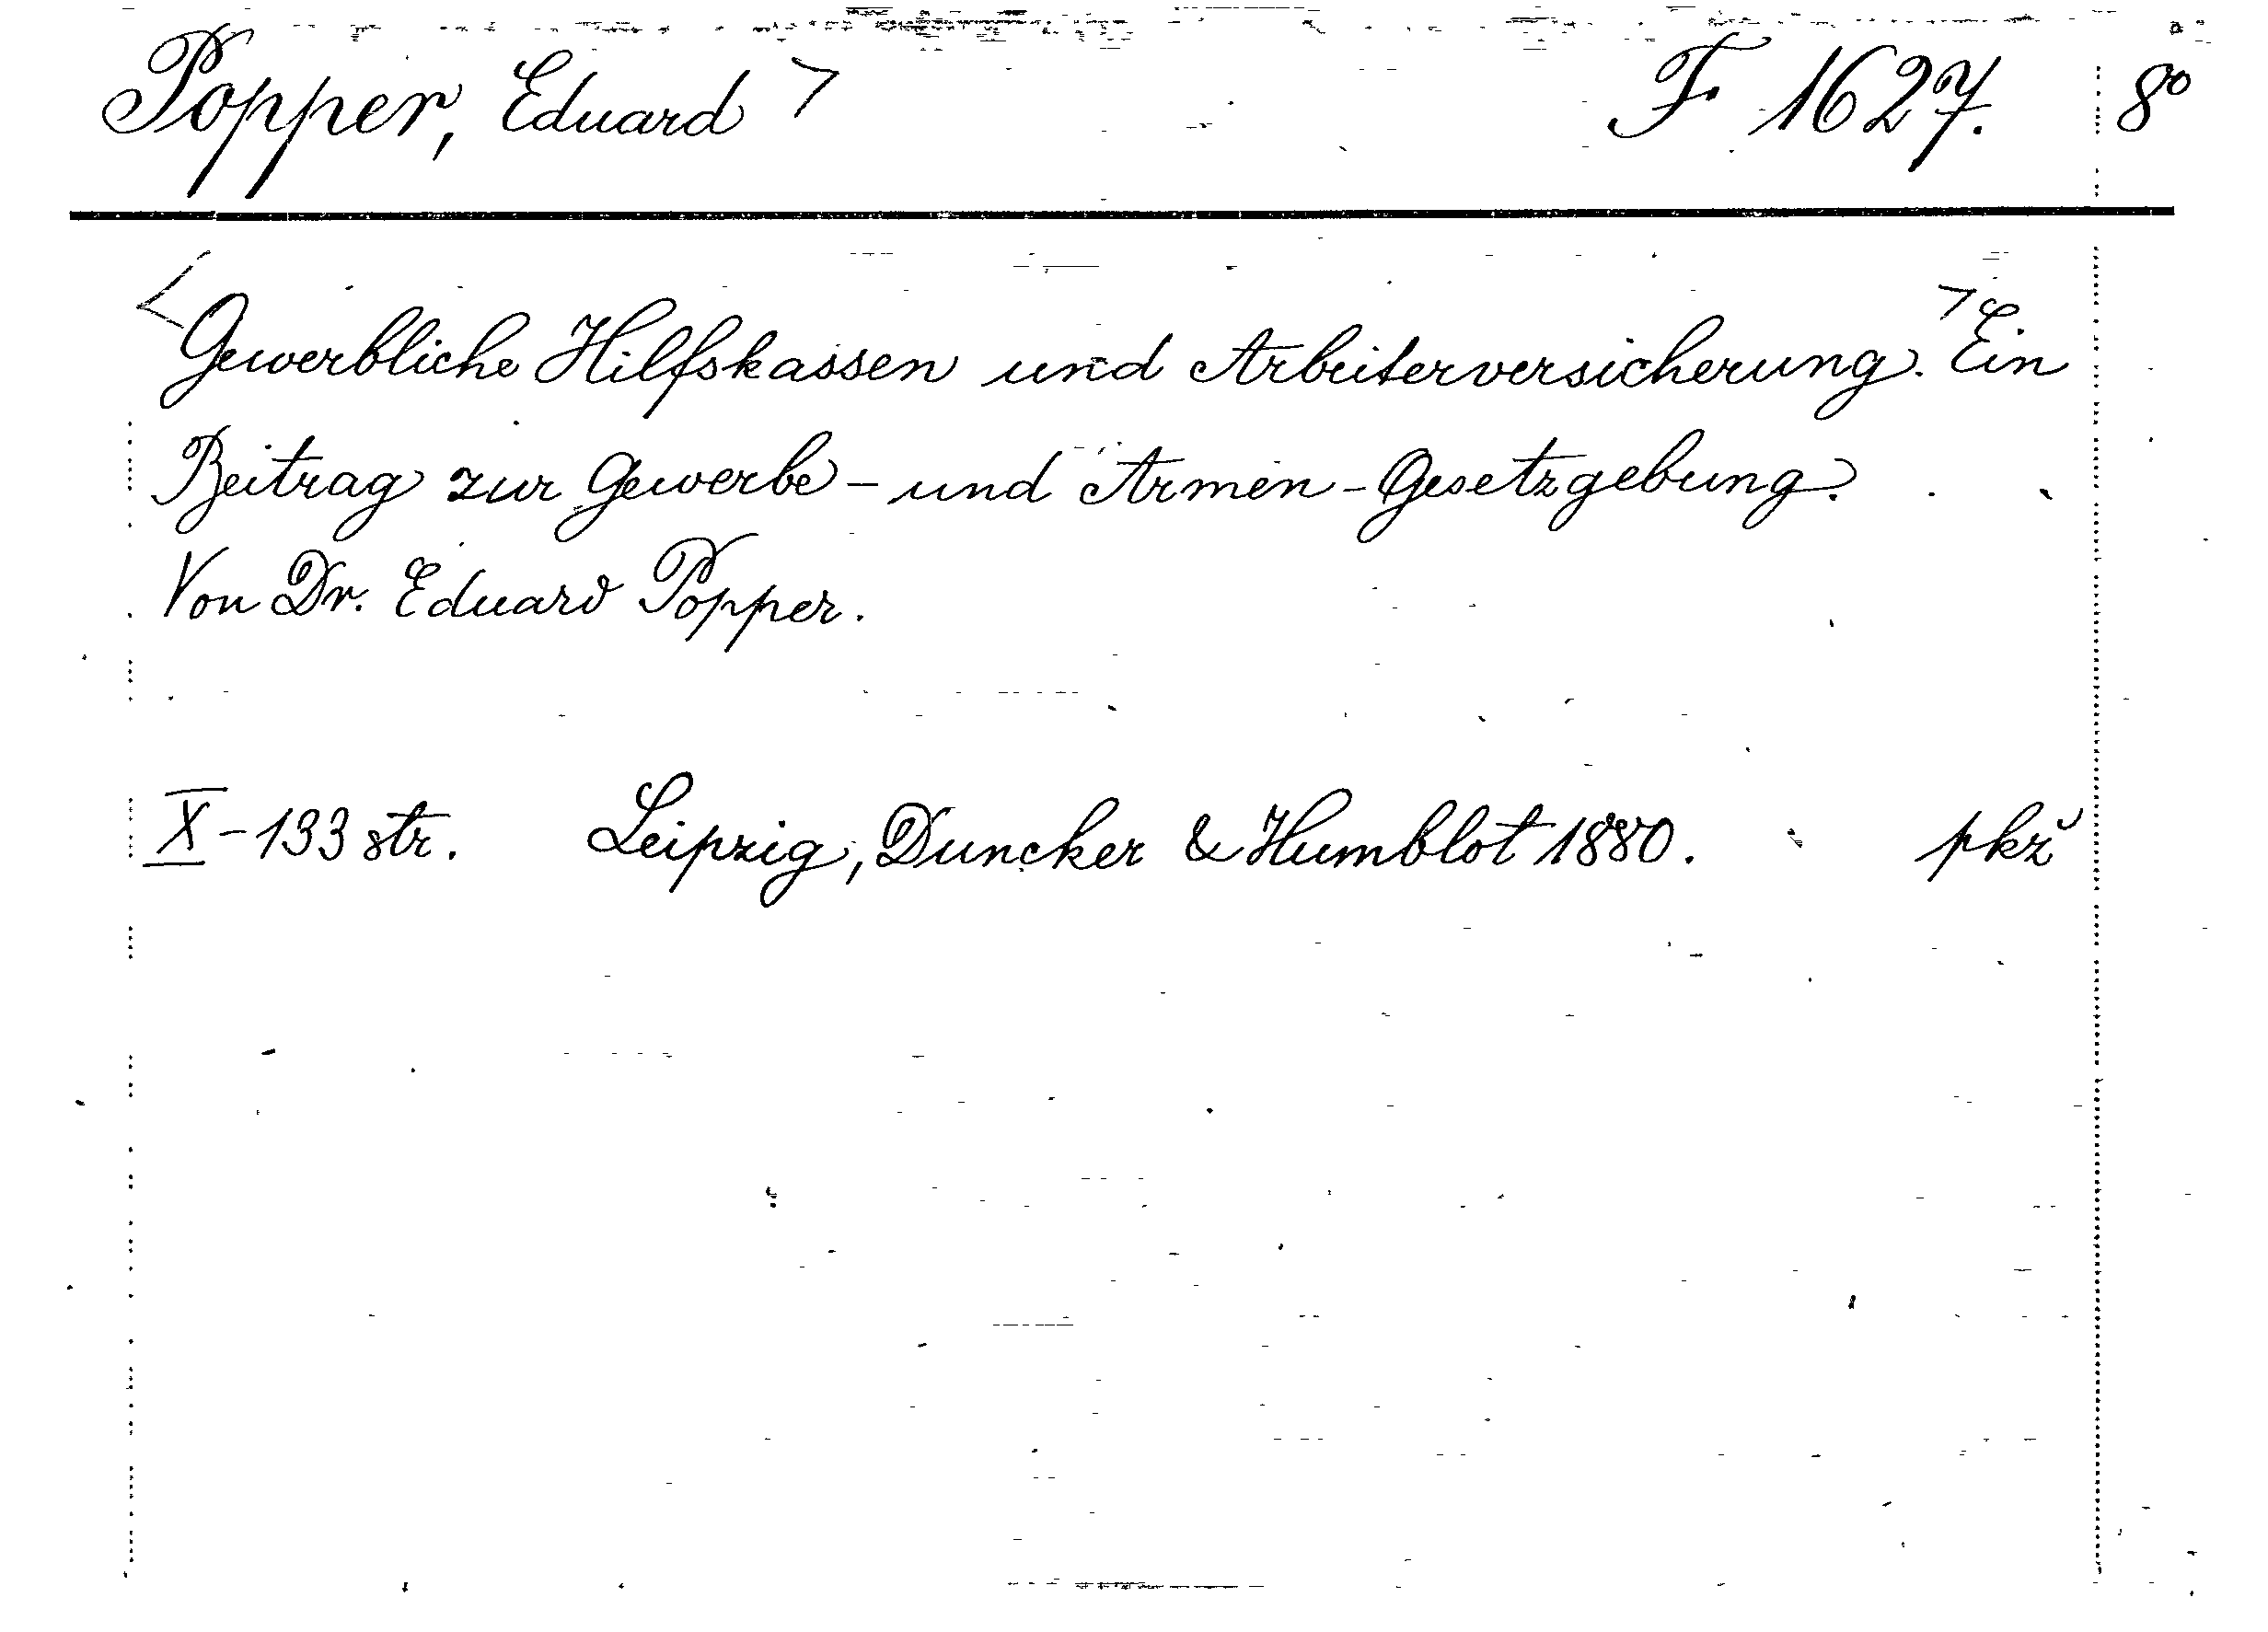 Popper, Eduard > F 1627. 8°
<Gewerbliche Hilfskassen und Arbeiterversicherung.> Ein
Beitrag zur Gewerbe- und Armen-Gesetzgebung.
Von Dr. Eduard Popper.
X-133 str. Leipzig, Duncker & Humblot 1880. pkž